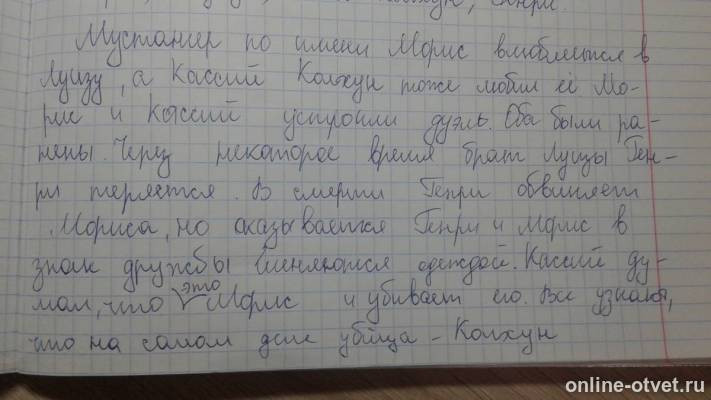 Мустангер по имени Морис влюбляется в
Луизу, а Кассий Колхун тоже любил её. Мо-
рис и Кассий устроили дуэль. Оба были ра-
нены. Через некоторое время брат Луизы Ген-
ри теряется. В смерти Генри обвиняет
Мориса, но оказывается Генри и Морис в
знак дружбы меняются одеждой. Кассий ду-
мал, что это Морис и убивает его. Все узнают,
что на самом деле убийца - Колхун
online-otvet.ru